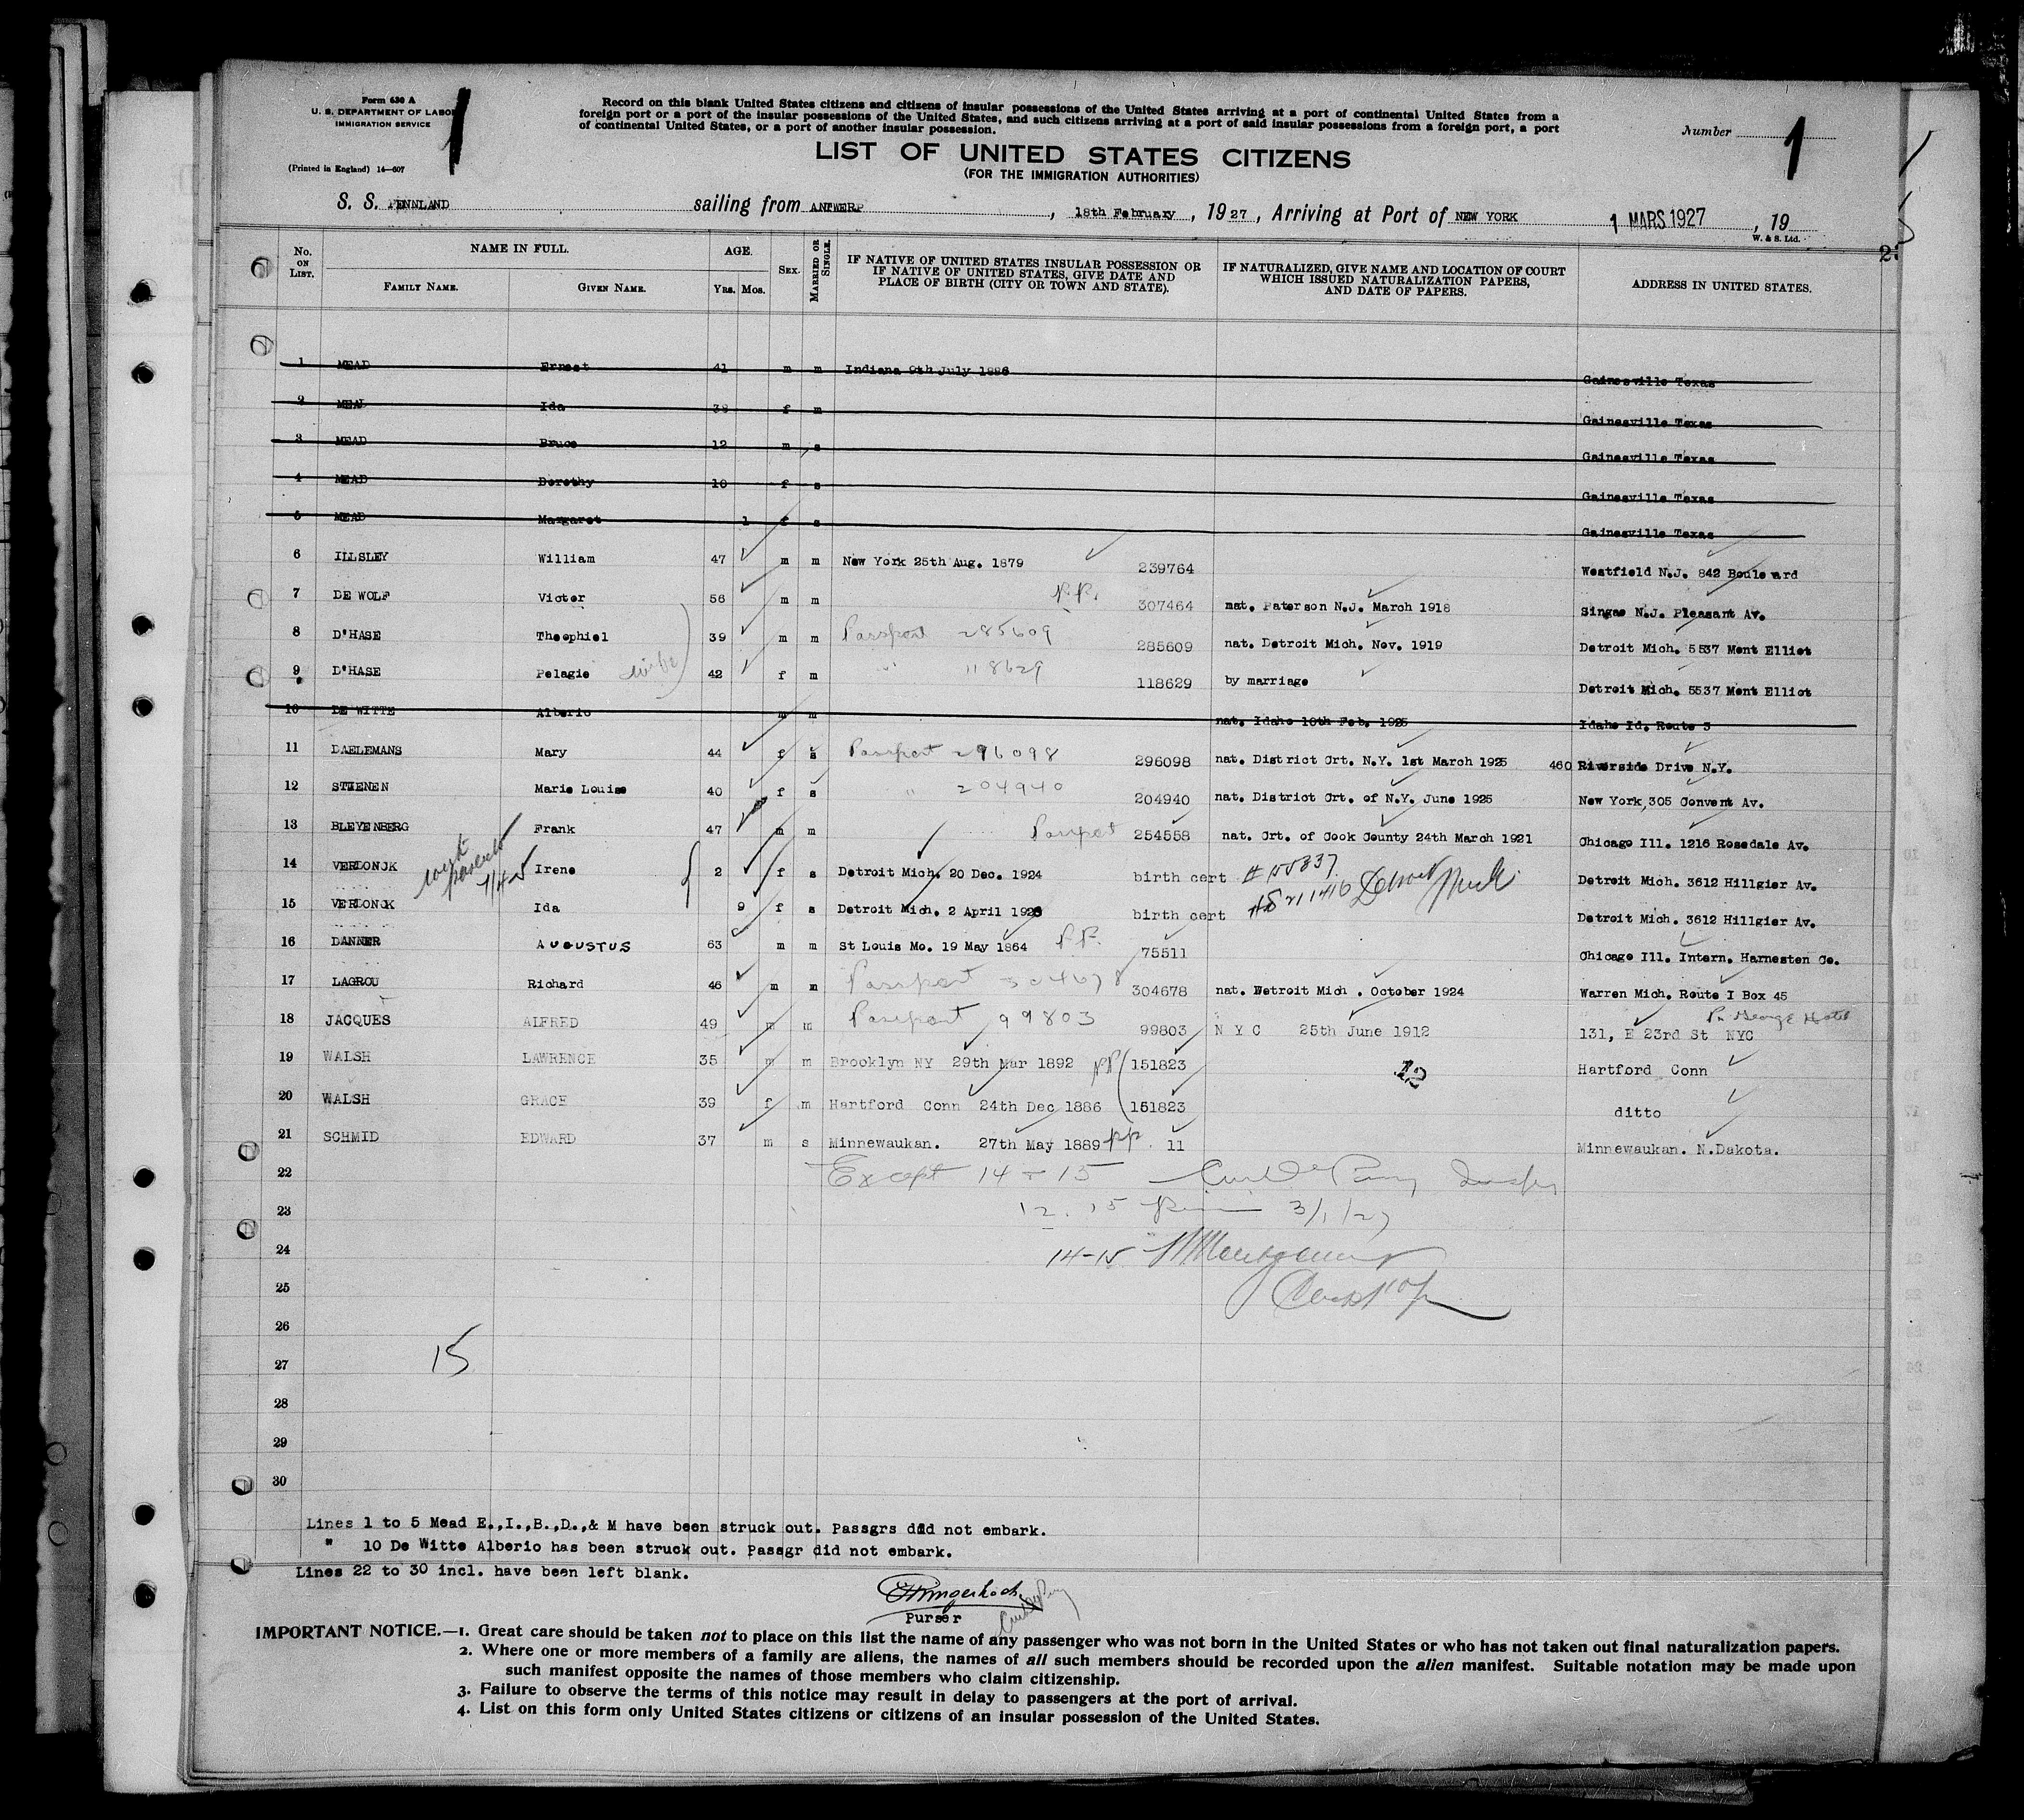 Form 630 A
U. S. DEPARTMENT OF LABOR
IMMIGRATION SERVICE
(Printed in England) 14—607
1
Record on this blank United States citizens and citizens of insular possessions of the United States arriving at a port of continental United States from a
foreign port or a port of the insular possessions of the United States, and such citizens arriving at a port of said insular possessions from a foreign port, a port
of continental United States, or a port of another insular possession.
Number 1
LIST OF UNITED STATES CITIZENS
(FOR THE IMMIGRATION AUTHORITIES)
S. S. PENNLAND sailing from ANTWERP, 18th February, 1927, Arriving at Port of NEW YORK 1 MARS 1927, 19
W. & S. Ltd.
No. ON LIST. NAME IN FULL. FAMILY NAME. GIVEN NAME. AGE. Yrs. Mos. SEX. MARRIED OR SINGLE. IF NATIVE OF UNITED STATES INSULAR POSSESSION OR IF NATIVE OF UNITED STATES, GIVE DATE AND PLACE OF BIRTH (CITY OR TOWN AND STATE). IF NATURALIZED, GIVE NAME AND LOCATION OF COURT WHICH ISSUED NATURALIZATION PAPERS, AND DATE OF PAPERS. ADDRESS IN UNITED STATES.
1 MEAD Ernest 41 m m Indiana 9th July 1886 Gainesville Texas
2 MEAD Ida 38 f m Gainesville Texas
3 MEAD Bruce 12 m s Gainesville Texas
4 MEAD Dorothy 10 f s Gainesville Texas
5 MEAD Margaret 1 f s Gainesville Texas
6 ILLSLEY William 47 m m New York 25th Aug. 1879 239764 Westfield N.J. 842 Boulevard
7 DE WOLF Victor 56 m m P.P. 307464 nat. Paterson N.J. March 1918 Singac N.J. Pleasant Av.
8 D'HASE Theophiel 39 m m Passport 285609 285609 nat. Detroit Mich. Nov. 1919 Detroit Mich. 5537 Mont Elliot
9 D'HASE Pelagie wife 42 f m " 118629 118629 by marriage Detroit Mich. 5537 Mont Elliot
10 DE WITTE Alberio m m nat. Idaho 10th Feb. 1925 Idaho Id. Route 3
11 DAELEMANS Mary 44 f s Passport 296098 296098 nat. District Crt. N.Y. 1st March 1925 460 Riverside Drive N.Y.
12 STIENEN Marie Louise 40 f s " 204940 204940 nat. District Crt. of N.Y. June 1925 New York,305 Convent Av.
13 BLEYENBERG Frank 47 m m Passport 254558 nat. Crt. of Cook County 24th March 1921 Chicago Ill. 1216 Rosedale Av.
with parents
14 VERDONCK Irene 2 f s Detroit Mich. 20 Dec. 1924 birth cert Detroit Mich. 3612 Hillgier Av.
15 VERDONCK Ida 9 f s Detroit Mich. 2 April 1926 birth cert Detroit Mich. 3612 Hillgier Av.
16 DANNER AUGUSTUS 63 m m St Louis Mo. 19 May 1864 P.P. 75511 Chicago Ill. Intern. Harnesten Co.
17 LAGROU Richard 46 m m Passport 304678 304678 nat. Detroit Mich . October 1924 Warren Mich. Route I Box 45
18 JACQUES ALFRED 49 m m Passport 99803 99803 N Y C 25th June 1912 131, E 23rd St NYC George Hotel
19 WALSH LAWRENCE 35 m m Brooklyn NY 29th Mar 1892 PP 151823 Hartford Conn
12
20 WALSH GRACE 39 f m Hartford Conn 24th Dec 1886 151823 ditto
21 SCHMID EDWARD 37 m s Minnewaukan. 27th May 1889 PP. 11 Minnewaukan. N.Dakota.
22 Except 14 - 15
23 3/1/27
24 14-15
25
26
27 15
28
29
30
Lines 1 to 5 Mead E.,I.,B.,D.,& M have been struck out. Passgrs did not embark.
" 10 De Witte Alberio has been struck out. Passgr did not embark.
Lines 22 to 30 incl. have been left blank.
Purser
IMPORTANT NOTICE.—1. Great care should be taken not to place on this list the name of any passenger who was not born in the United States or who has not taken out final naturalization papers.
2. Where one or more members of a family are aliens, the names of all such members should be recorded upon the alien manifest. Suitable notation may be made upon
such manifest opposite the names of those members who claim citizenship.
3. Failure to observe the terms of this notice may result in delay to passengers at the port of arrival.
4. List on this form only United States citizens or citizens of an insular possession of the United States.